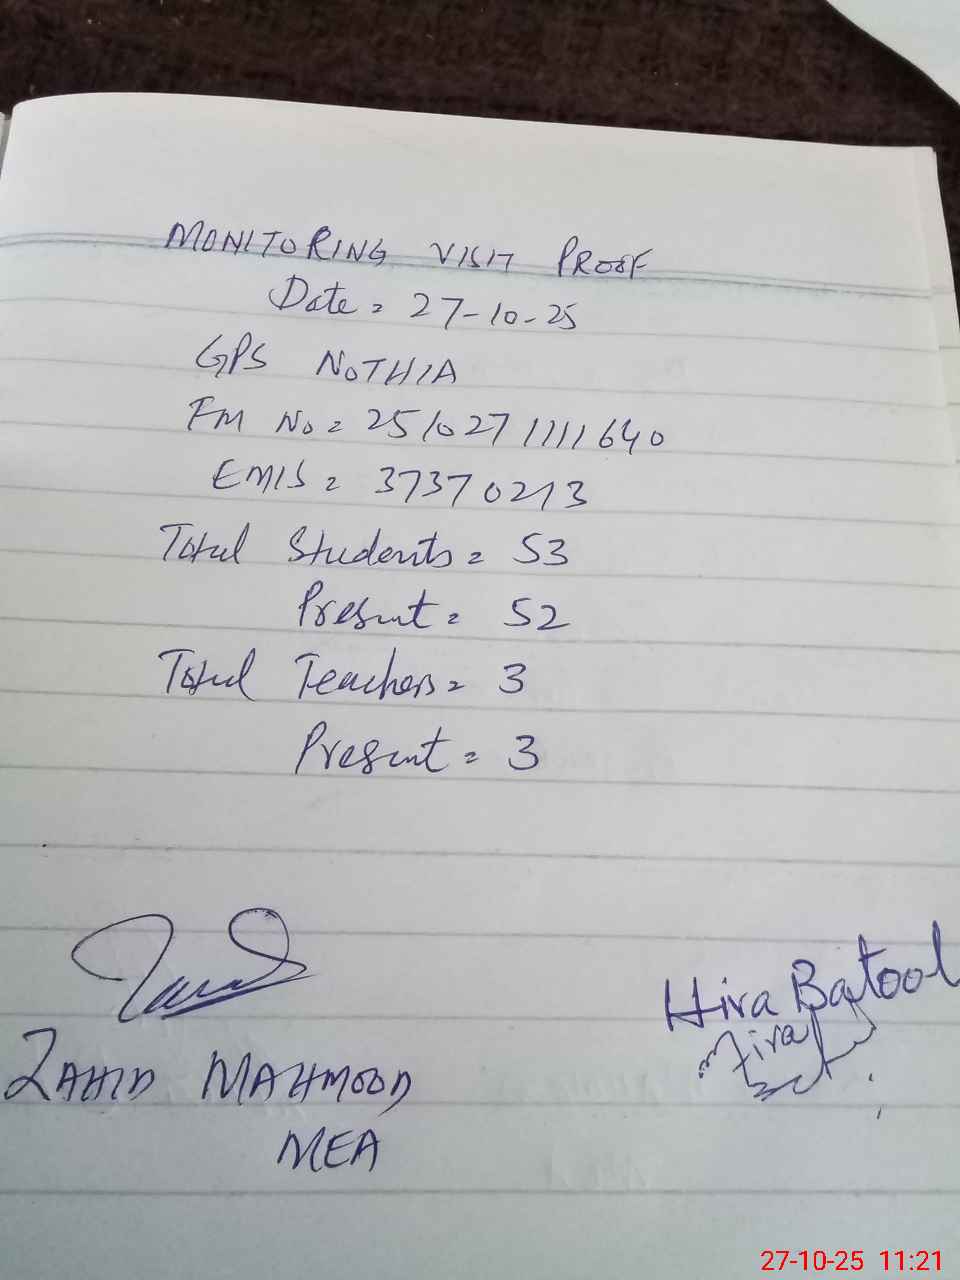 MONITORING VISIT PROOF
Date = 27-10-25
GPS NOTHIA
FM No = 251027 1111640
EMIS = 37370213
Total Students = 53
Present = 52
Total Teachers = 3
Present = 3
Hira Batool
Hira
ZAHID MAHMOOD
MEA
27-10-25 11:21